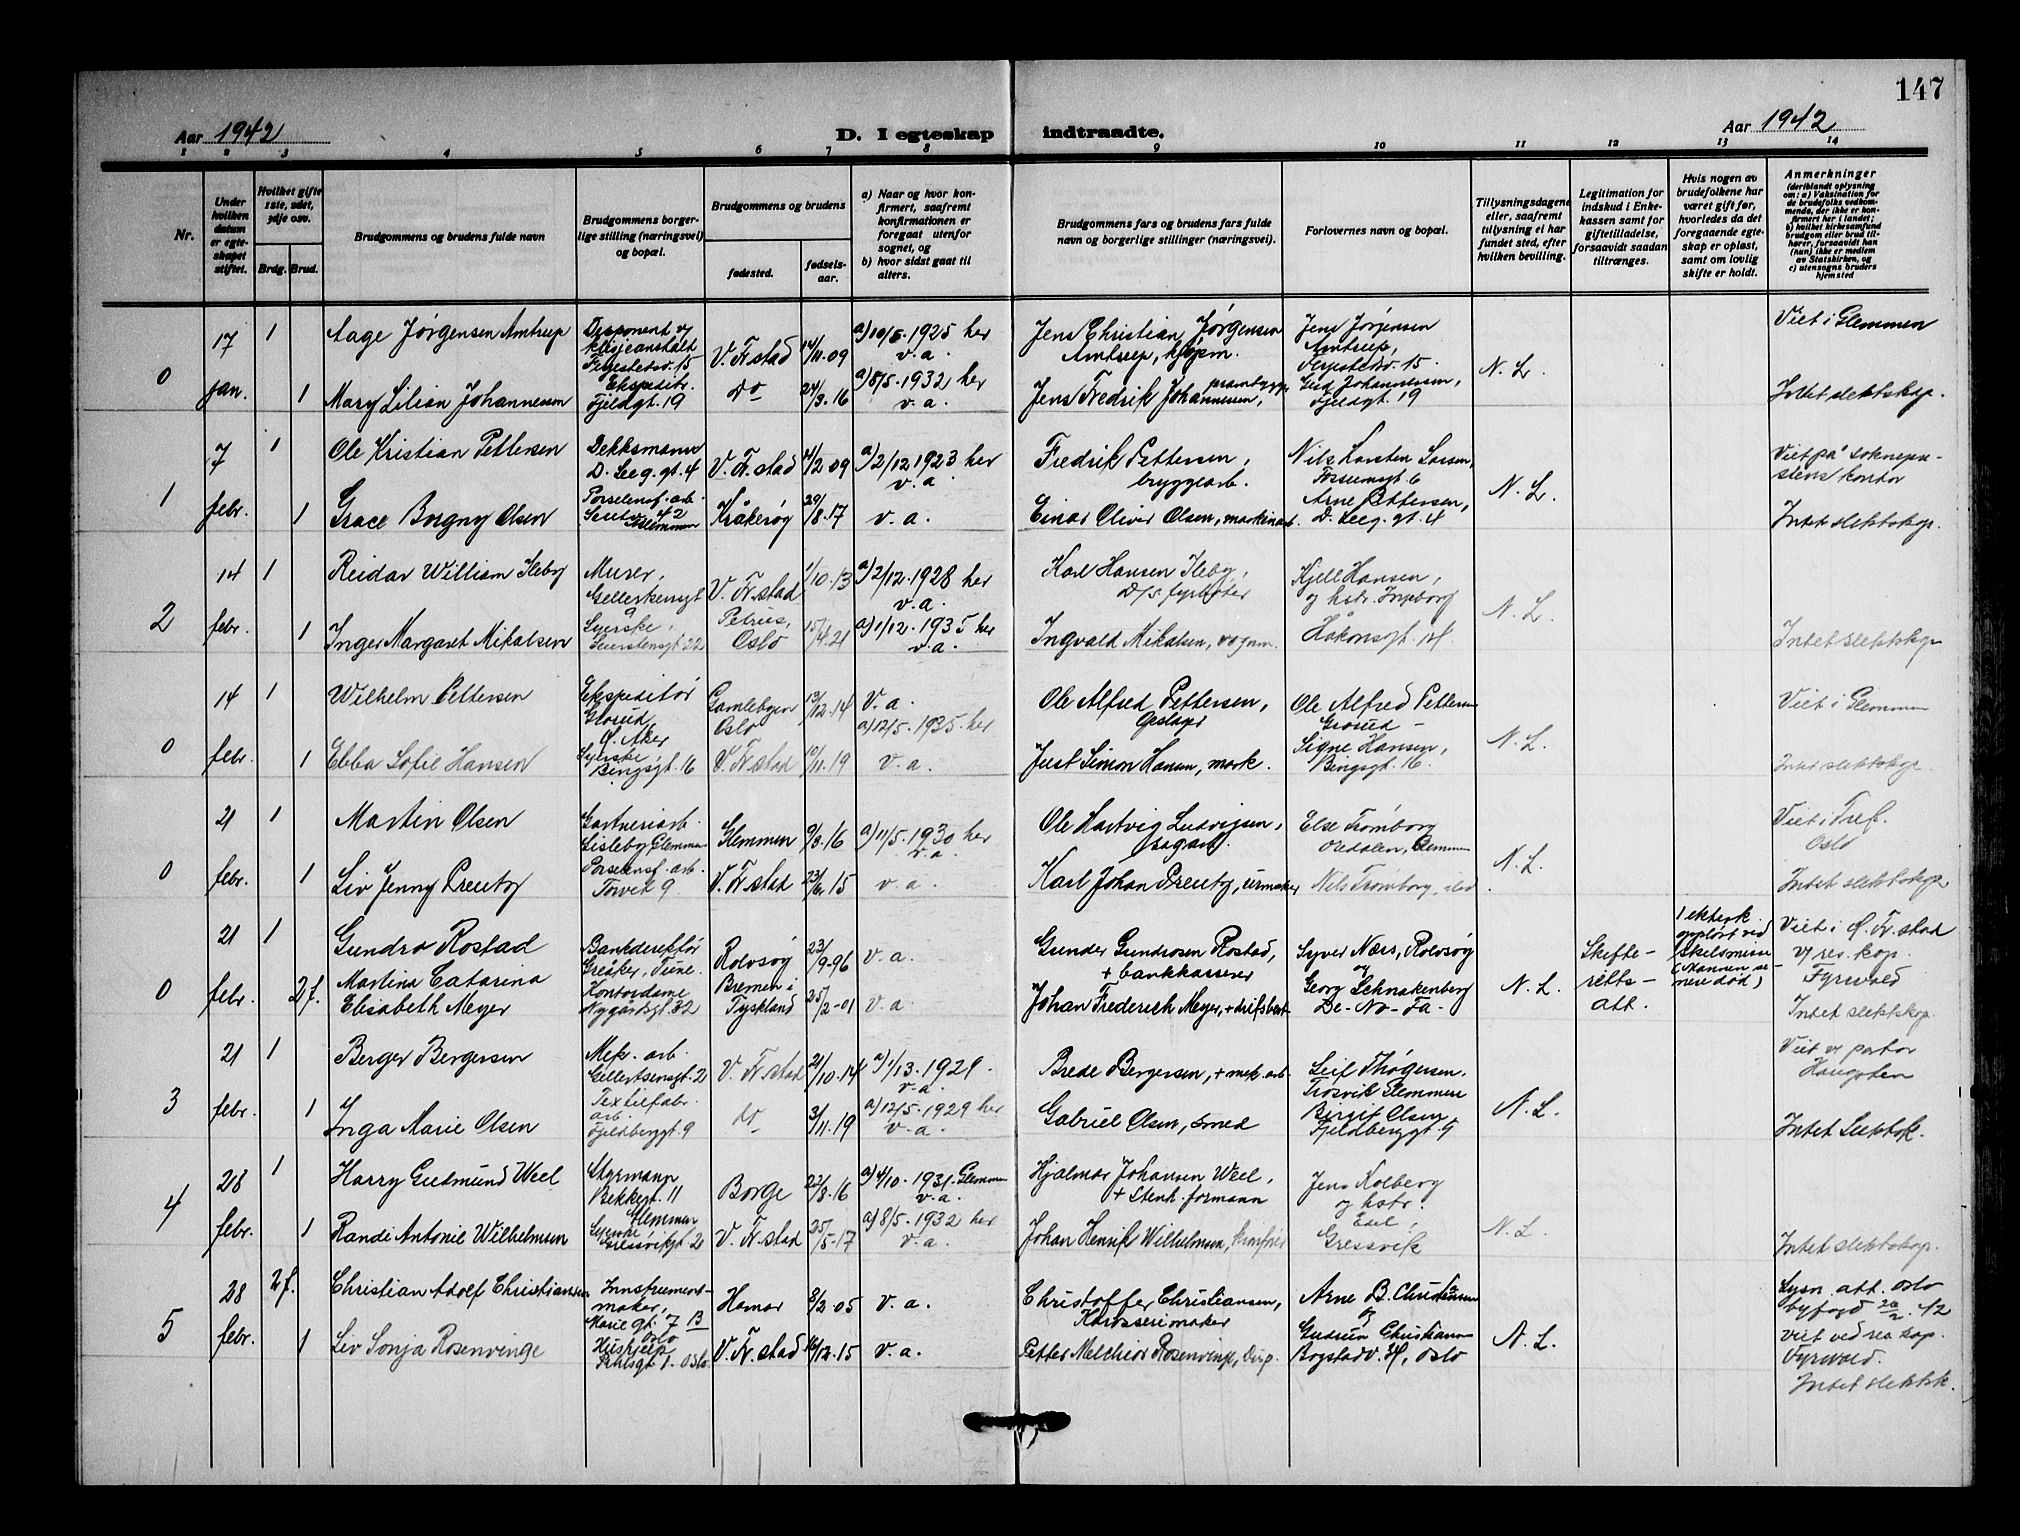 147
Aar 1942
D. I egteskap indtraadte.
Aar 1942
1 2 3 4 5 6 7 8 9 10 11 12 13 14
Nr.
Under hvilken datum er egte-skapet stiftet.
Hvilket gifte 1ste, 2det, 3dje osv.
Brdg. Brud.
Brudgommens og brudens fulde navn
Brudgommens borger-lige stilling (næringsvei) og bopæl.
Brudgommens og brudens
fødested.
fødsels-aar.
a) Naar og hvor kon-firmert, saafremt konfirmationen er foregaat utenfor sognet, og
b) hvor sidst gaat til alters.
Brudgommens fars og brudens fars fulde navn og borgerlige stillinger (næringsvei).
Forlovernes navn og bopæl.
Tillysningsdagene eller, saafremt tillysning ei har fundet sted, efter hvilken bevilling.
Legitimation for indskud i Enke-kassen samt for giftetilladelse, forsaavidt saadan tiltrænges.
Hvis nogen av brudefolkene har været gift før, hvorledes da det foregaaende egte-skap er opløst, samt om lovlig skifte er holdt.
Anmerkninger
(deriblandt oplysning om: a) Vaksination for de brudefolks vedkom-mende, der ikke er kon-firmert her i landet; b) hvilket kirkesamfund brudgom eller brud til-hører, forsaavidt han (hun) ikke er medlem av Statskirken, og c) utensogns bruders hjemsted
0
17 jan. 1 Aage Jørgensen Amtrup
Disponent v/ klisjeanstalt
V. Fr.stad 14/11-09 a) 10/5-1925 her v.a.
Jens Christian Jørgensen Amtrup, kjøpm.
Jens Jørgensen Amtrup,
N. L.
Viet i Glemmen
1 Mary Lilian Johannesen
Ekspeditr. Fjeldgt. 19
do 24/3-16 a) 8/5-1932 her v.a.
Jens Fredrik Johannessen, prambygger
Johannessen, Fjeldgt. 19
Intet slektskap.
1
7 febr. 1 Ole Kristian Pettersen
Dekksmann D. Seeg.gt. 4
V. Fr.stad 14/2-09 a) 2/12-1923 her v.a.
Fredrik Pettersen, bryggearb.
N. L.
Viet på sokneprestens kontor
1 Grace Borgny Olsen
Porselensf. arb. 42 Glemmen
Kråkerøy 29/8-17 v.a.
Einar Oliver Olsen, maskinarb.
Arne Pettersen, D. Seeg. gt. 4
Intet slektskap.
2
14 febr. 1 Reidar William Ileby
Murer,
V. Fr.stad 1/10-13 a) 2/12-1928 her v.a.
Karl Hansen Ileby, D/S fyrbøter
Kjell Hansen, og hstr. Ingeborg
N. L.
1 Inger Margaret Mikalsen
Syerske,
Petrus, Oslo 15/4-21 a) 1/12-1935 her v.a.
Ingvald Mikalsen, vognm.
Håkonsgt. 14
Intet slektskap
0
14 febr. 1 Wilhelm Pettersen
Ekspeditør Grorud Ø. Aker
Gamlebyen Oslo 13/12-14 v.a.
Ole Alfred Pettersen,
Ole Alfred Pettersen Grorud -
N. L.
Viet i Glemmen
a) 12/5-1935 her
1 Ebba Sofie Hansen
Syerske, Bingsgt. 16
V. Fr.stad 10/11-19 v.a.
Just Simon Hansen, mask.
Signe Hansen, Bingsgt. 16.
Intet slektskap
0
21 febr. 1 Martin Olsen
Gartneriarb. Lisleby Glemmen
Glemmen 9/3-16 a) 11/5-1930 her v.a.
Ole Hartvig Ludvigsen, sagarb.
Else Tromborg Oredalen, Glemmen
N. L.
Viet i Tref. Oslo
1 Liv Jenny Preuty
Porselensf. arb. Torvet 9
V. Fr.stad 23/6-15 v.a.
Karl Johan Preuty, urmaker
Nils Tromborg, ibd
Intet slektskap
0
21 febr. 1 Gundro Rostad
Bankdirektør Greåker, Tune.
Rolvsøy 23/9-96 v.a.
Gunder Gundrosen Rostad, + bankkasserer
Syver Næss, Rolvsøy
N. L.
Skifte-retts-att.
1 ektesk. oppløst ved skilsmisse (Mannen se-nere død)
Viet i Ø. Fr.stad v/ res. kap. Fyrwald
2 f. Martina Catarina Elisabeth Meyer
Kontordame Nygårdsgt. 32
Bremen i Tyskland 25/2-01 v.a.
Johan Frederich Meyer, + driftsbest.
og Georg Schnakenberg De-No-Fa-
Intet slektskap.
3
21 febr. 1 Berger Bergersen
Mek. arb. Gellertsensgt. 2
V. Fr.stad 21/10-14 a) 1/13-1929- v.a.
Brede Bergersen, + mek. arb.
Leif Thøgersen, Trosvik Glemmen
N. L.
Viet v/ pastor Haugsten
1 Inga Marie Olsen
Textilfabr. arb. Fjeldberggt. 9
do 3/11-19 a) 12/5-1929 her v.a.
Gabriel Olsen, smed
Birgit Olsen, Fjeldberggt. 9
Intet slektsk.
4
28 febr. 1 Harry Gudmund Weel
Styrmann Bekkegt. 11 Glemmen
Borge 22/8-16 a) 4/10-1931 Glemmen v.a.
Hjalmar Johansen Weel, + Stenh. formann
Jens Kolberg og hstr.
N. L.
1 Randi Antonie Wilhelmsen
Syerske Gressvikgt. 2
V. Fr.stad 25/5-17 a) 8/5-1932 her v.a.
Johan Henrik Wilhelmsen,
Gressvik
Intet slektskap.
5
28 febr. 2 f. Christian Adolf Christiansen
Instrument-maker, Marie gt. 7 B Oslo
Hamar 8/2-05 v.a.
Christoffer Christiansen, Karosserimaker
Arne B. Christiansen
N. L.
Lysn. att. Oslo byfogd 20/2-42 viet ved res. kap. Fyrwald.
1 Liv Sonja Rosenvinge
Hushjelp 1. Oslo
V. Fr.stad 16/12-15 v.a.
Petter Melchior Rosenvinge, Disp.
og Gudrun Christiansen Bogstadv. Oslo
Intet slektsk.